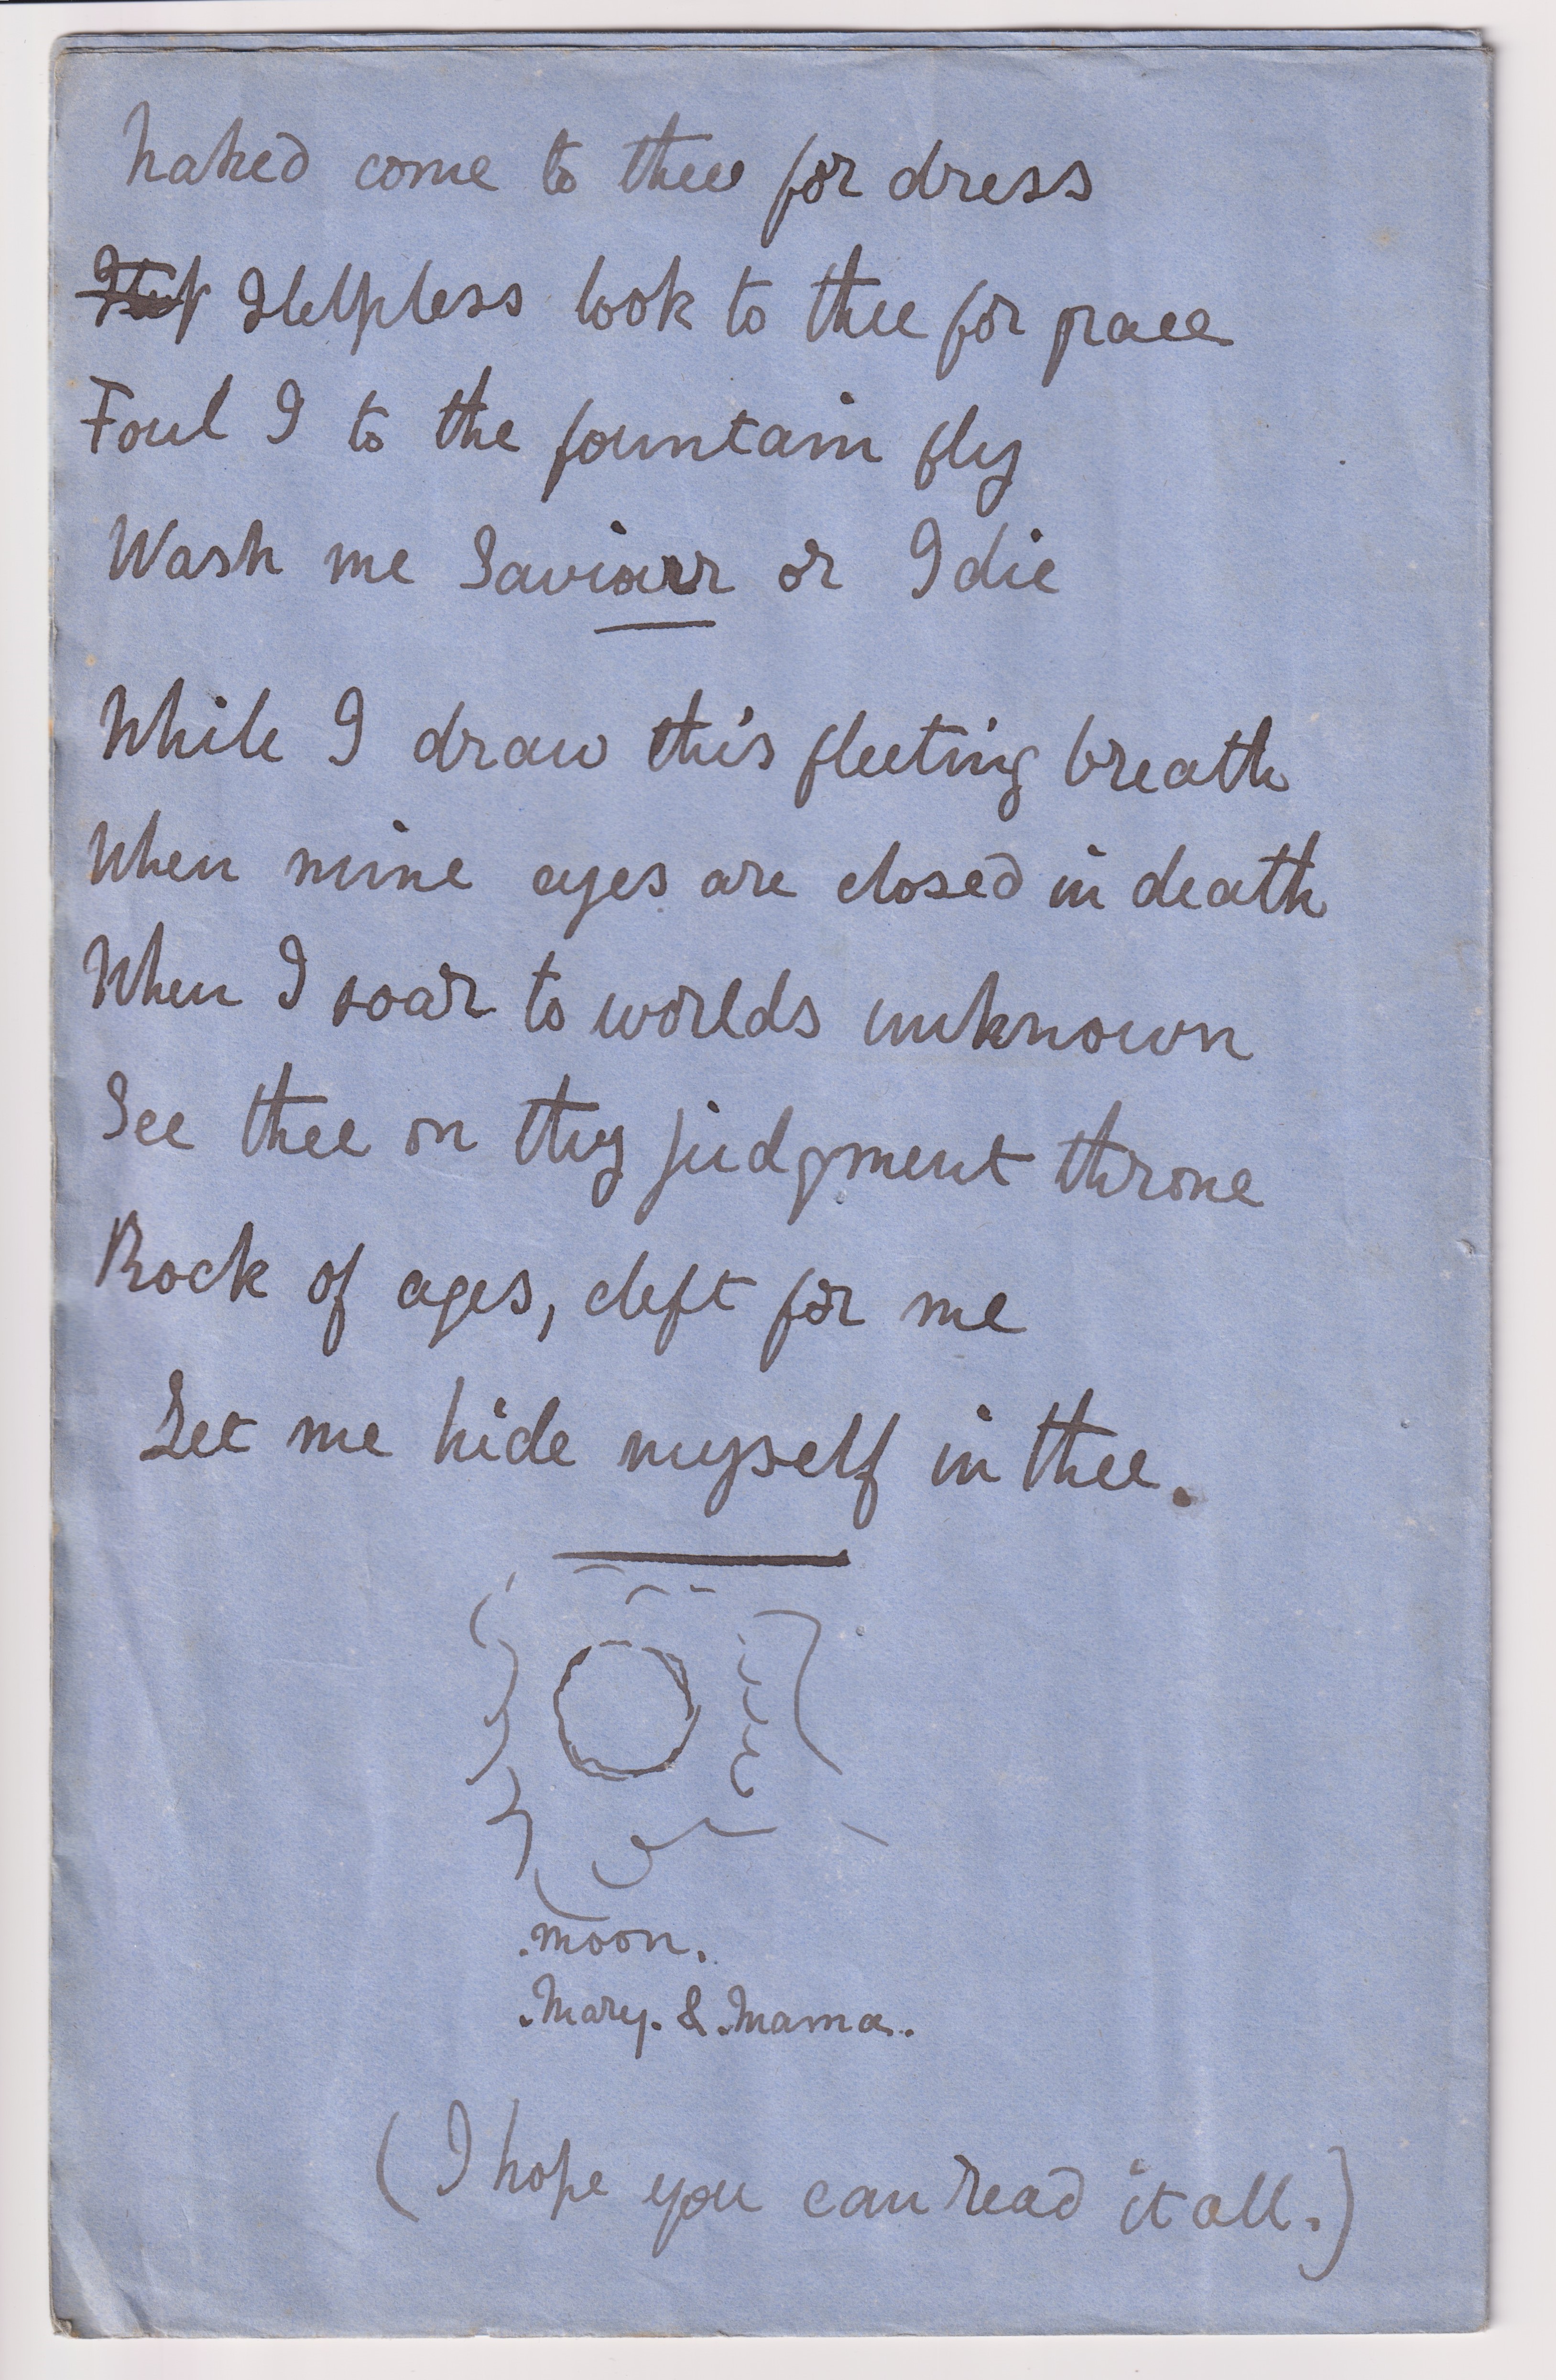 naked come to thee for dress
Helpless look to thee for grace
Foul I to the fountain fly
Wash me Saviour or I die
While I draw this fleeting breath
When mine eyes are closed in death
When I soar to worlds unknown
See thee on thy judgment throne
Rock of ages, cleft for me
Let me hide myself in thee.
.moon.
.Mary. & .Mama..
(I hope you can read it all.)